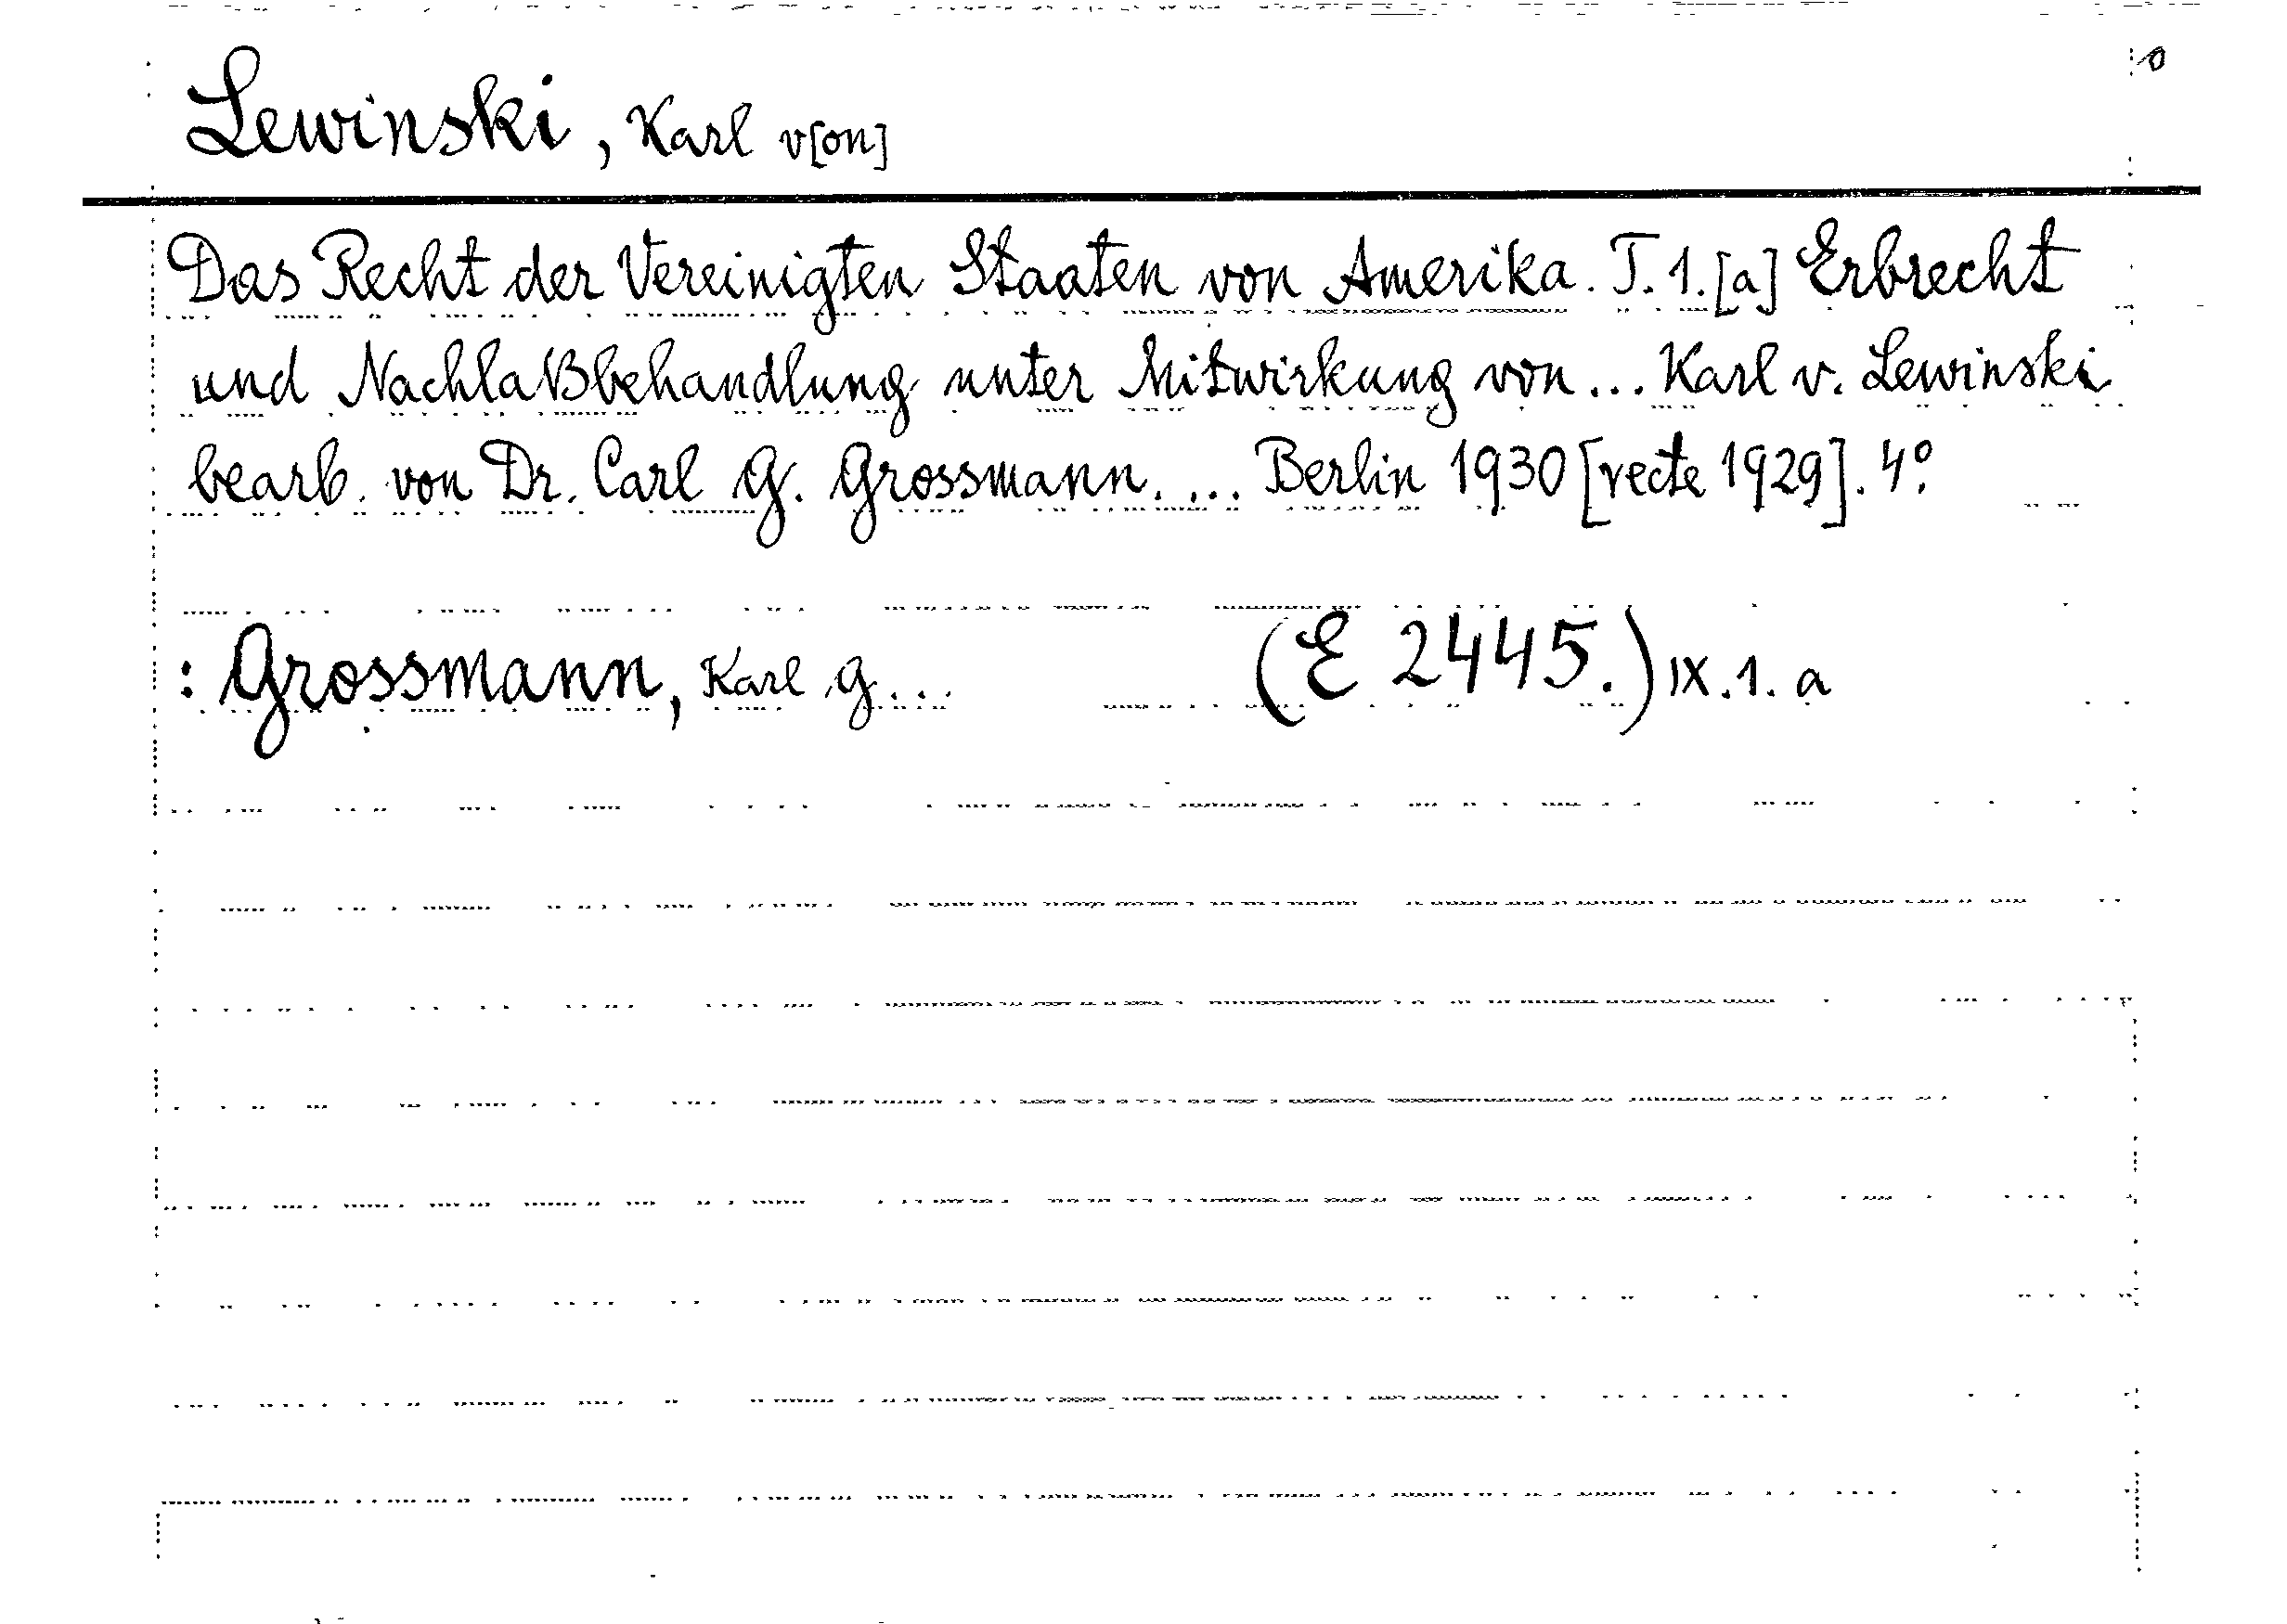 Lewinski, Karl v[on]
Das Recht der Vereinigten Staaten von Amerika. T. 1. [a] Erbrecht
und Nachlaßbehandlung unter Mitwirkung von ... Karl v. Lewinski
bearb. von Dr. Carl G. Grossmann. ... Berlin 1930 [recte 1929]. 4°.
: Grossmann, Karl G... (E 2445.) IX. 1. a